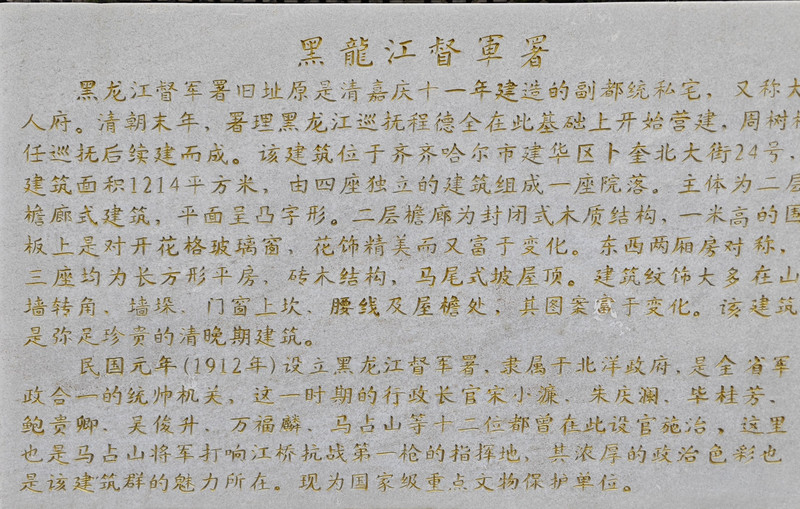 黑龍江督軍署
黑龙江督军署旧址原是清嘉庆十一年建造的副都统私宅，又称大
人府。清朝末年，署理黑龙江巡抚程德全在此基础上开始营建，周树模
任巡抚后续建而成。该建筑位于齐齐哈尔市建华区卜奎北大街24号，
建筑面积1214平方米，由四座独立的建筑组成一座院落。主体为二层
檐廊式建筑，平面呈凸字形。二层檐廊为封闭式木质结构，一米高的围
板上是对开花格玻璃窗，花饰精美而又富于变化。东西两厢房对称，
三座均为长方形平房，砖木结构，马尾式坡屋顶。建筑纹饰大多在山
墙转角、墙垛、门窗上坎、腰线及屋檐处，其图案富于变化。该建筑
是弥足珍贵的清晚期建筑。
民国元年(1912年)设立黑龙江督军署，隶属于北洋政府，是全省军
政合一的统帅机关，这一时期的行政长官宋小濂、朱庆澜、毕桂芳、
鲍贵卿、吴俊升、万福麟、马占山等十二位都曾在此设官施治、这里
也是马占山将军打响江桥抗战第一枪的指挥地，其浓厚的政治色彩也
是该建筑群的魅力所在。现为国家级重点文物保护单位。